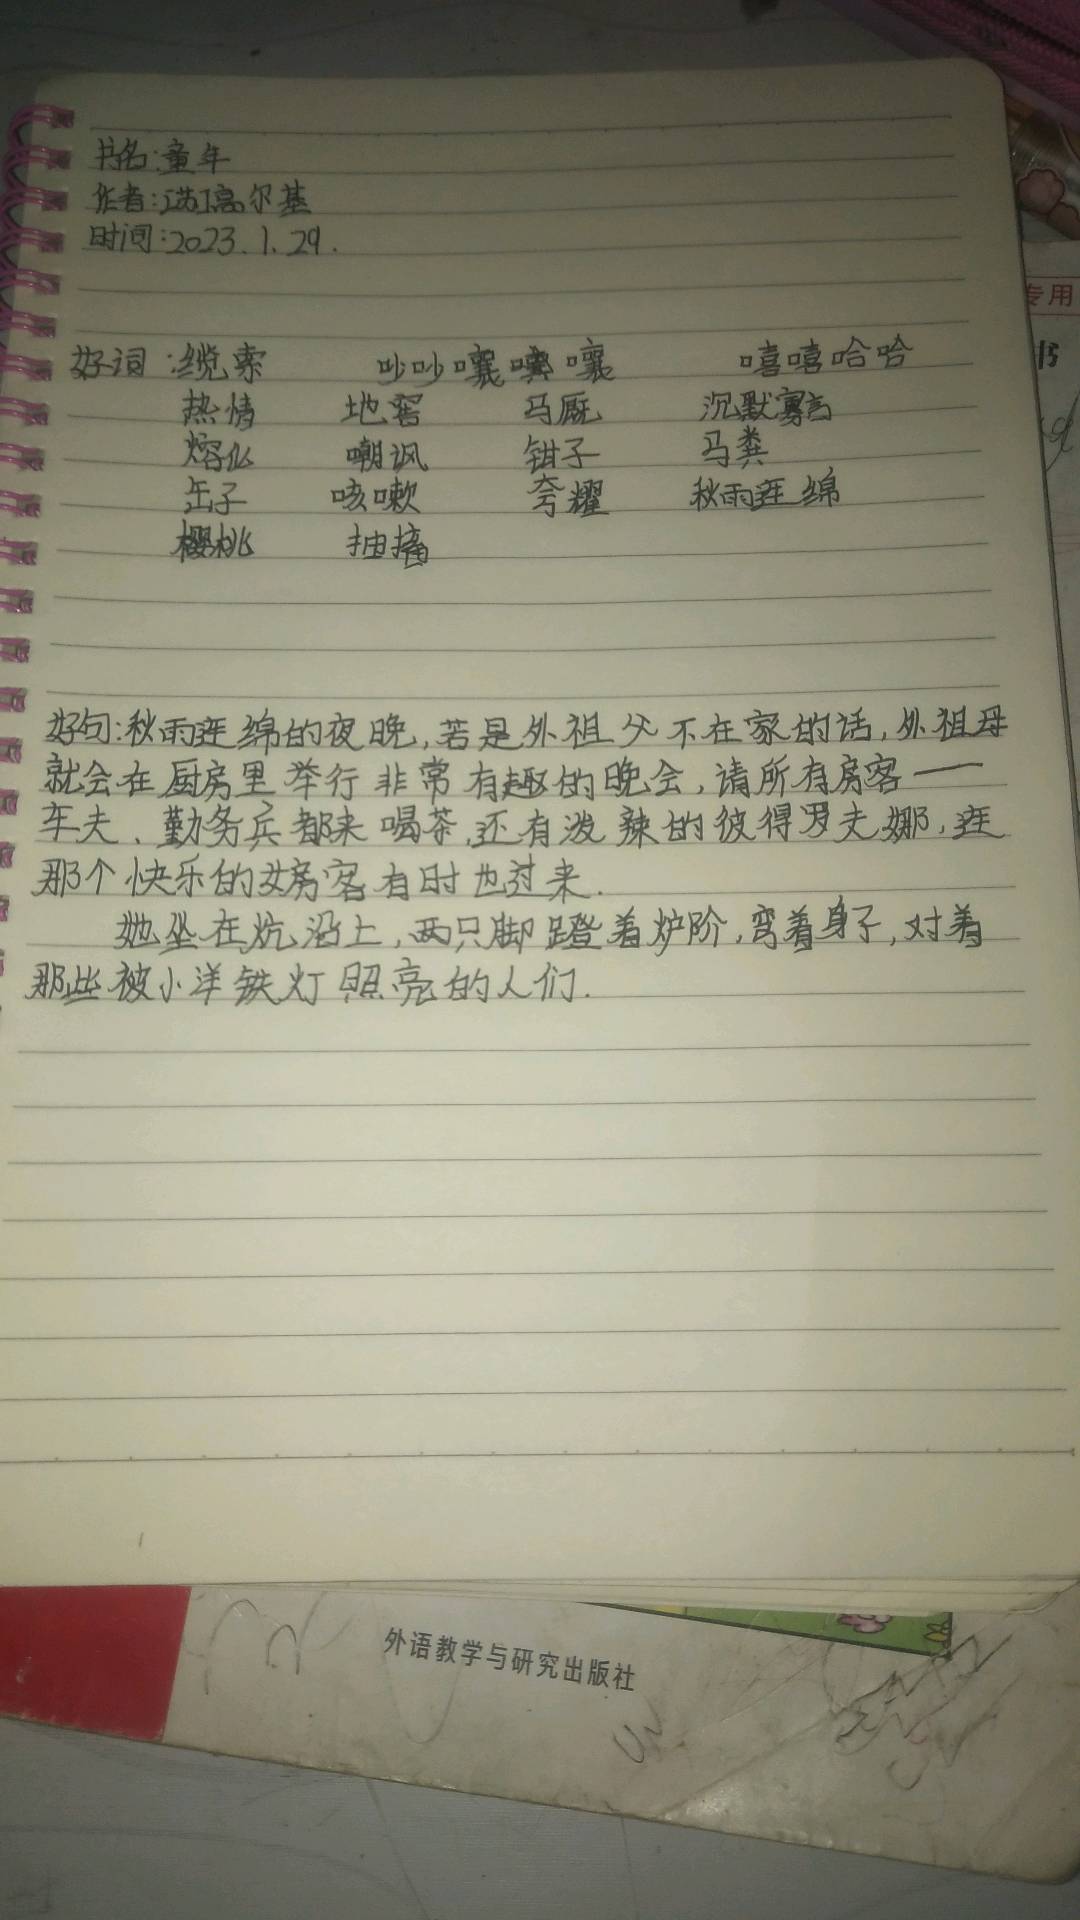 书名:童年
作者:[苏]高尔基
时间:2023.1.29.
专用
书
好词:缆索 吵吵嚷嚷 嘻嘻哈哈
热情 地窖 马厩 沉默寡言
熔化 嘲讽 钳子 马粪
缶子 咳嗽 夸耀 秋雨连绵
樱桃 抽搐
好句:秋雨连绵的夜晚,若是外祖父不在家的话,外祖母
就会在厨房里举行非常有趣的晚会,请所有房客——
车夫、勤务兵都来喝茶,还有泼辣的彼得罗夫娜,连
那个快乐的女房客有时也过来.
她坐在炕沿上,两只脚蹬着炉阶,弯着身子,对着
那些被小洋铁灯照亮的人们.
外语教学与研究出版社